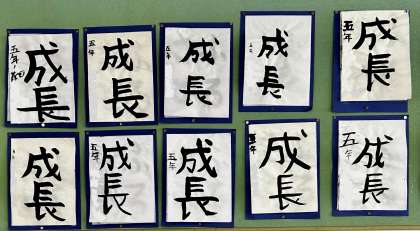 成長
五年
成長
五年
成長
五年
成長
成長
五年
成長
成長
五年
成長
五年
成長
五年
成長
五年
成長
五年